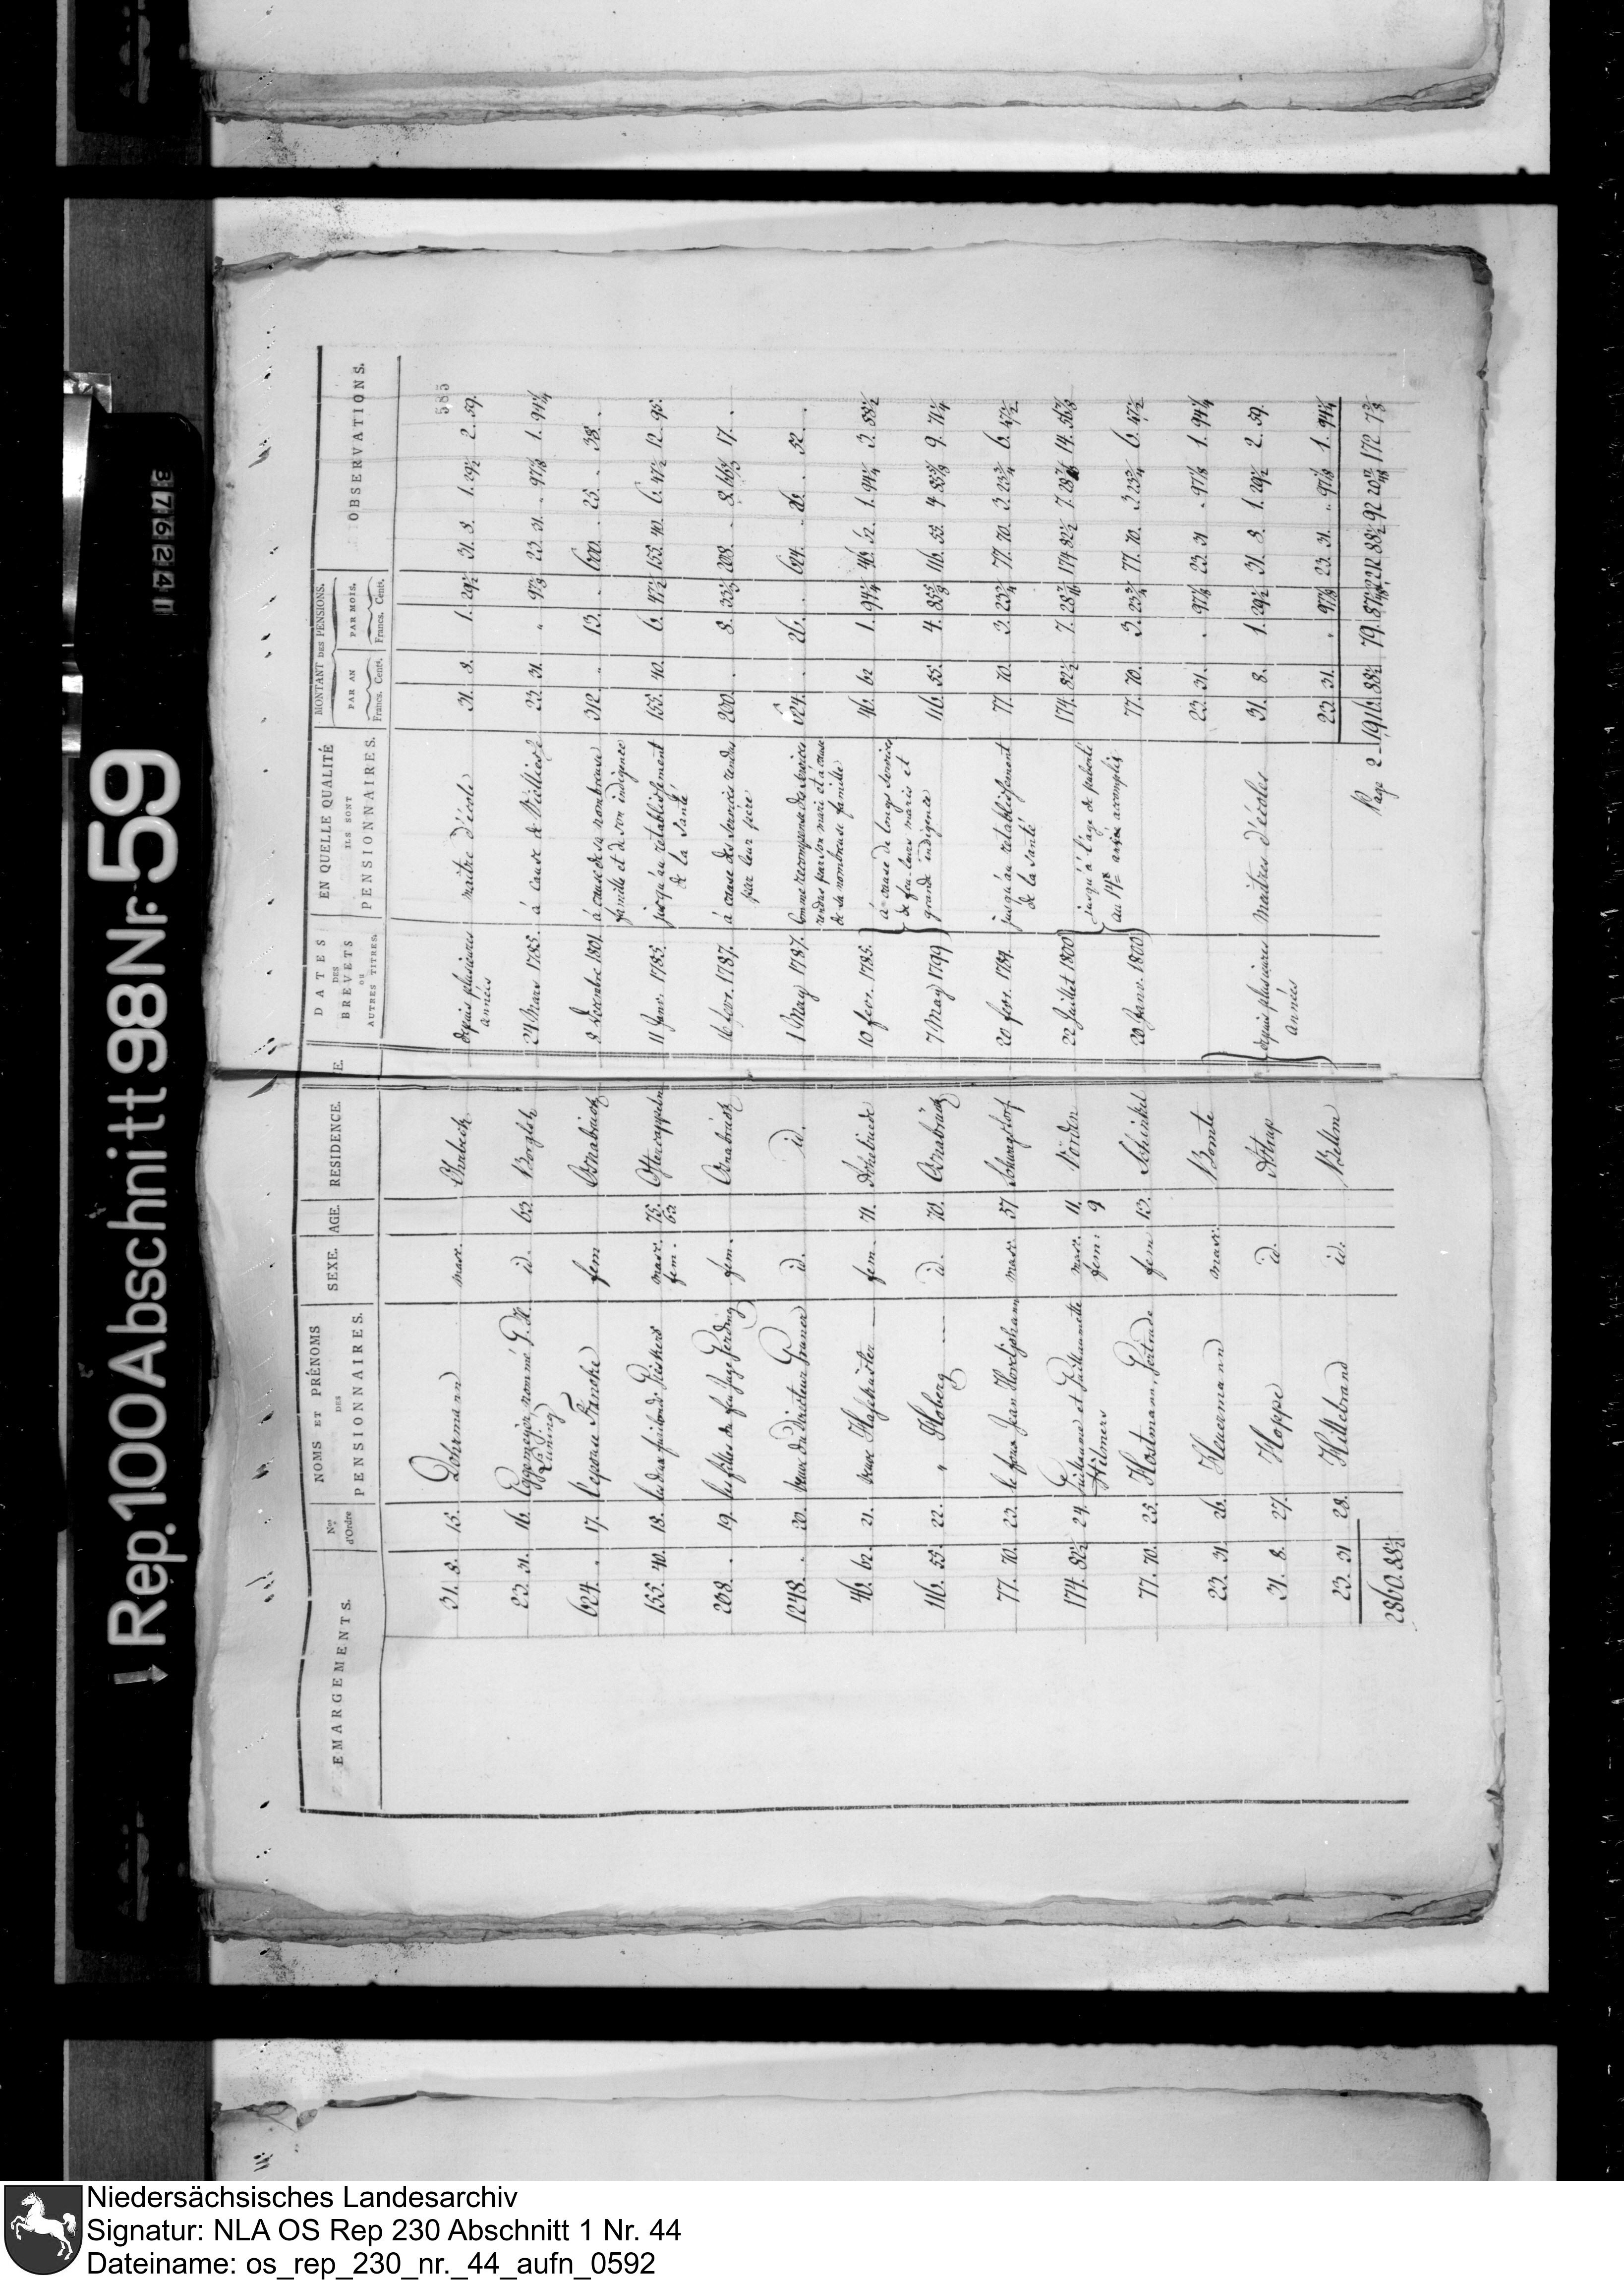 Rep. 100 Abschnitt 98 Nr. 59
376240
585
EMARGEMENTS.
Nos d'Ordre
NOMS ET PRÉNOMS DES PENSIONNAIRES.
SEXE.
AGE.
RESIDENCE.
DATES DES BREVETS OU AUTRES TITRES.
EN QUELLE QUALITÉ ILS SONT PENSIONNAIRES.
MONTANT DES PENSIONS.
PAR AN
Francs. Cents.
PAR MOIS.
Francs. Cents.
OBSERVATIONS.
31. 8. 15. Dohrmann masc. depuis plusieures années maitre d'école 31. 8. 1. 29½ 31. 8. 1. 29½ 2. 59.
23. 31. 16. Eggemeyer nommé G. H. Lüning id. 62. Borgloh 24 Mars 1785. à cause de Vielliesse 23. 31. " 97⅛ 23. 31. " 97⅛ 1. 94¼
624. . 17. l'epouse Francke fem Osnabrück 2 Decembre 1801 à cause de sa nombreuse famille et de son indigence 312. " 13. . 600. . 25. . 38. .
155. 40. 18. masc. fem. 75. 62 Ostercappeln 11 Janv. 1785. jusqu'au retablissement de la Santé 155. 40. 6. 47½ 155. 40. 6. 47½ 12. 95.
208. . 19. les filles du feu Juge Gerding fem. Osnabrück 16 fevr. 1787. à cause des Services rendus par leur père 200. . 8. 33⅓ 208. . 8. 66⅔ 17. .
1248. . 20. veuve du Directeur Gruner id. id. 1 May 1787. Comme recompense des services rendus par son mari et à cause de sa nombreuse famille 624. . 26. . 624. . 26. . 52. .
46. 62. 21. veuve fem. 71. 10 fevr. 1785. 46. 62 1. 94¼ 46. 62. 1. 94¼ 3. 88½
116. 55. 22. " Hoberg id. 70. Osnabrück 7 May 1799 à cause de longs services de feu leurs maris et grande indigence 116. 55. 4. 85⅝ 116. 55. 4. 85⅝ 9. 71¼
77. 70. 23. le fou Jean masc 37 20 fevr. 1789. jusqu'au retablissement de la Santé 77. 70. 3. 23¾ 77. 70. 3. 23¾ 6. 47½
174. 82½ 24. Guillaume et Guillaumette Hilmers masc. fem: 11. 9 Vörden 22 Juillet 1800 174. 82½ 7. 174 82½ 7. 14.
77. 70. 25. Hostmann, Gertrude fem 13. Schinkel 20 Janv. 1800 jusqu'à l'âge de puberté au 14e année accomplie 77. 70. 3. 23¾ 77. 70. 3 23¾ 6. 47½
23. 31 26. Heuermann masc. Bomte 23. 31. . 97⅛ 23. 31 . 97⅛ 1. 94¼
31. 8. 27. Hoppe id. depuis plusieures années Maitres d'écoles 31. 8. 1. 29½ 31. 8. 1. 29½ 2. 59.
23. 31 28. Hillebrand id. Bellm 23. 31. " 97⅛ 23. 31. " 97⅛ 1. 94¼
2860. 88½
Page 2 1916. 88½ 79. 2212 88½ 92 172
Niedersächsisches Landesarchiv
Signatur: NLA OS Rep 230 Abschnitt 1 Nr. 44
Dateiname: os_rep_230_nr._44_aufn_0592